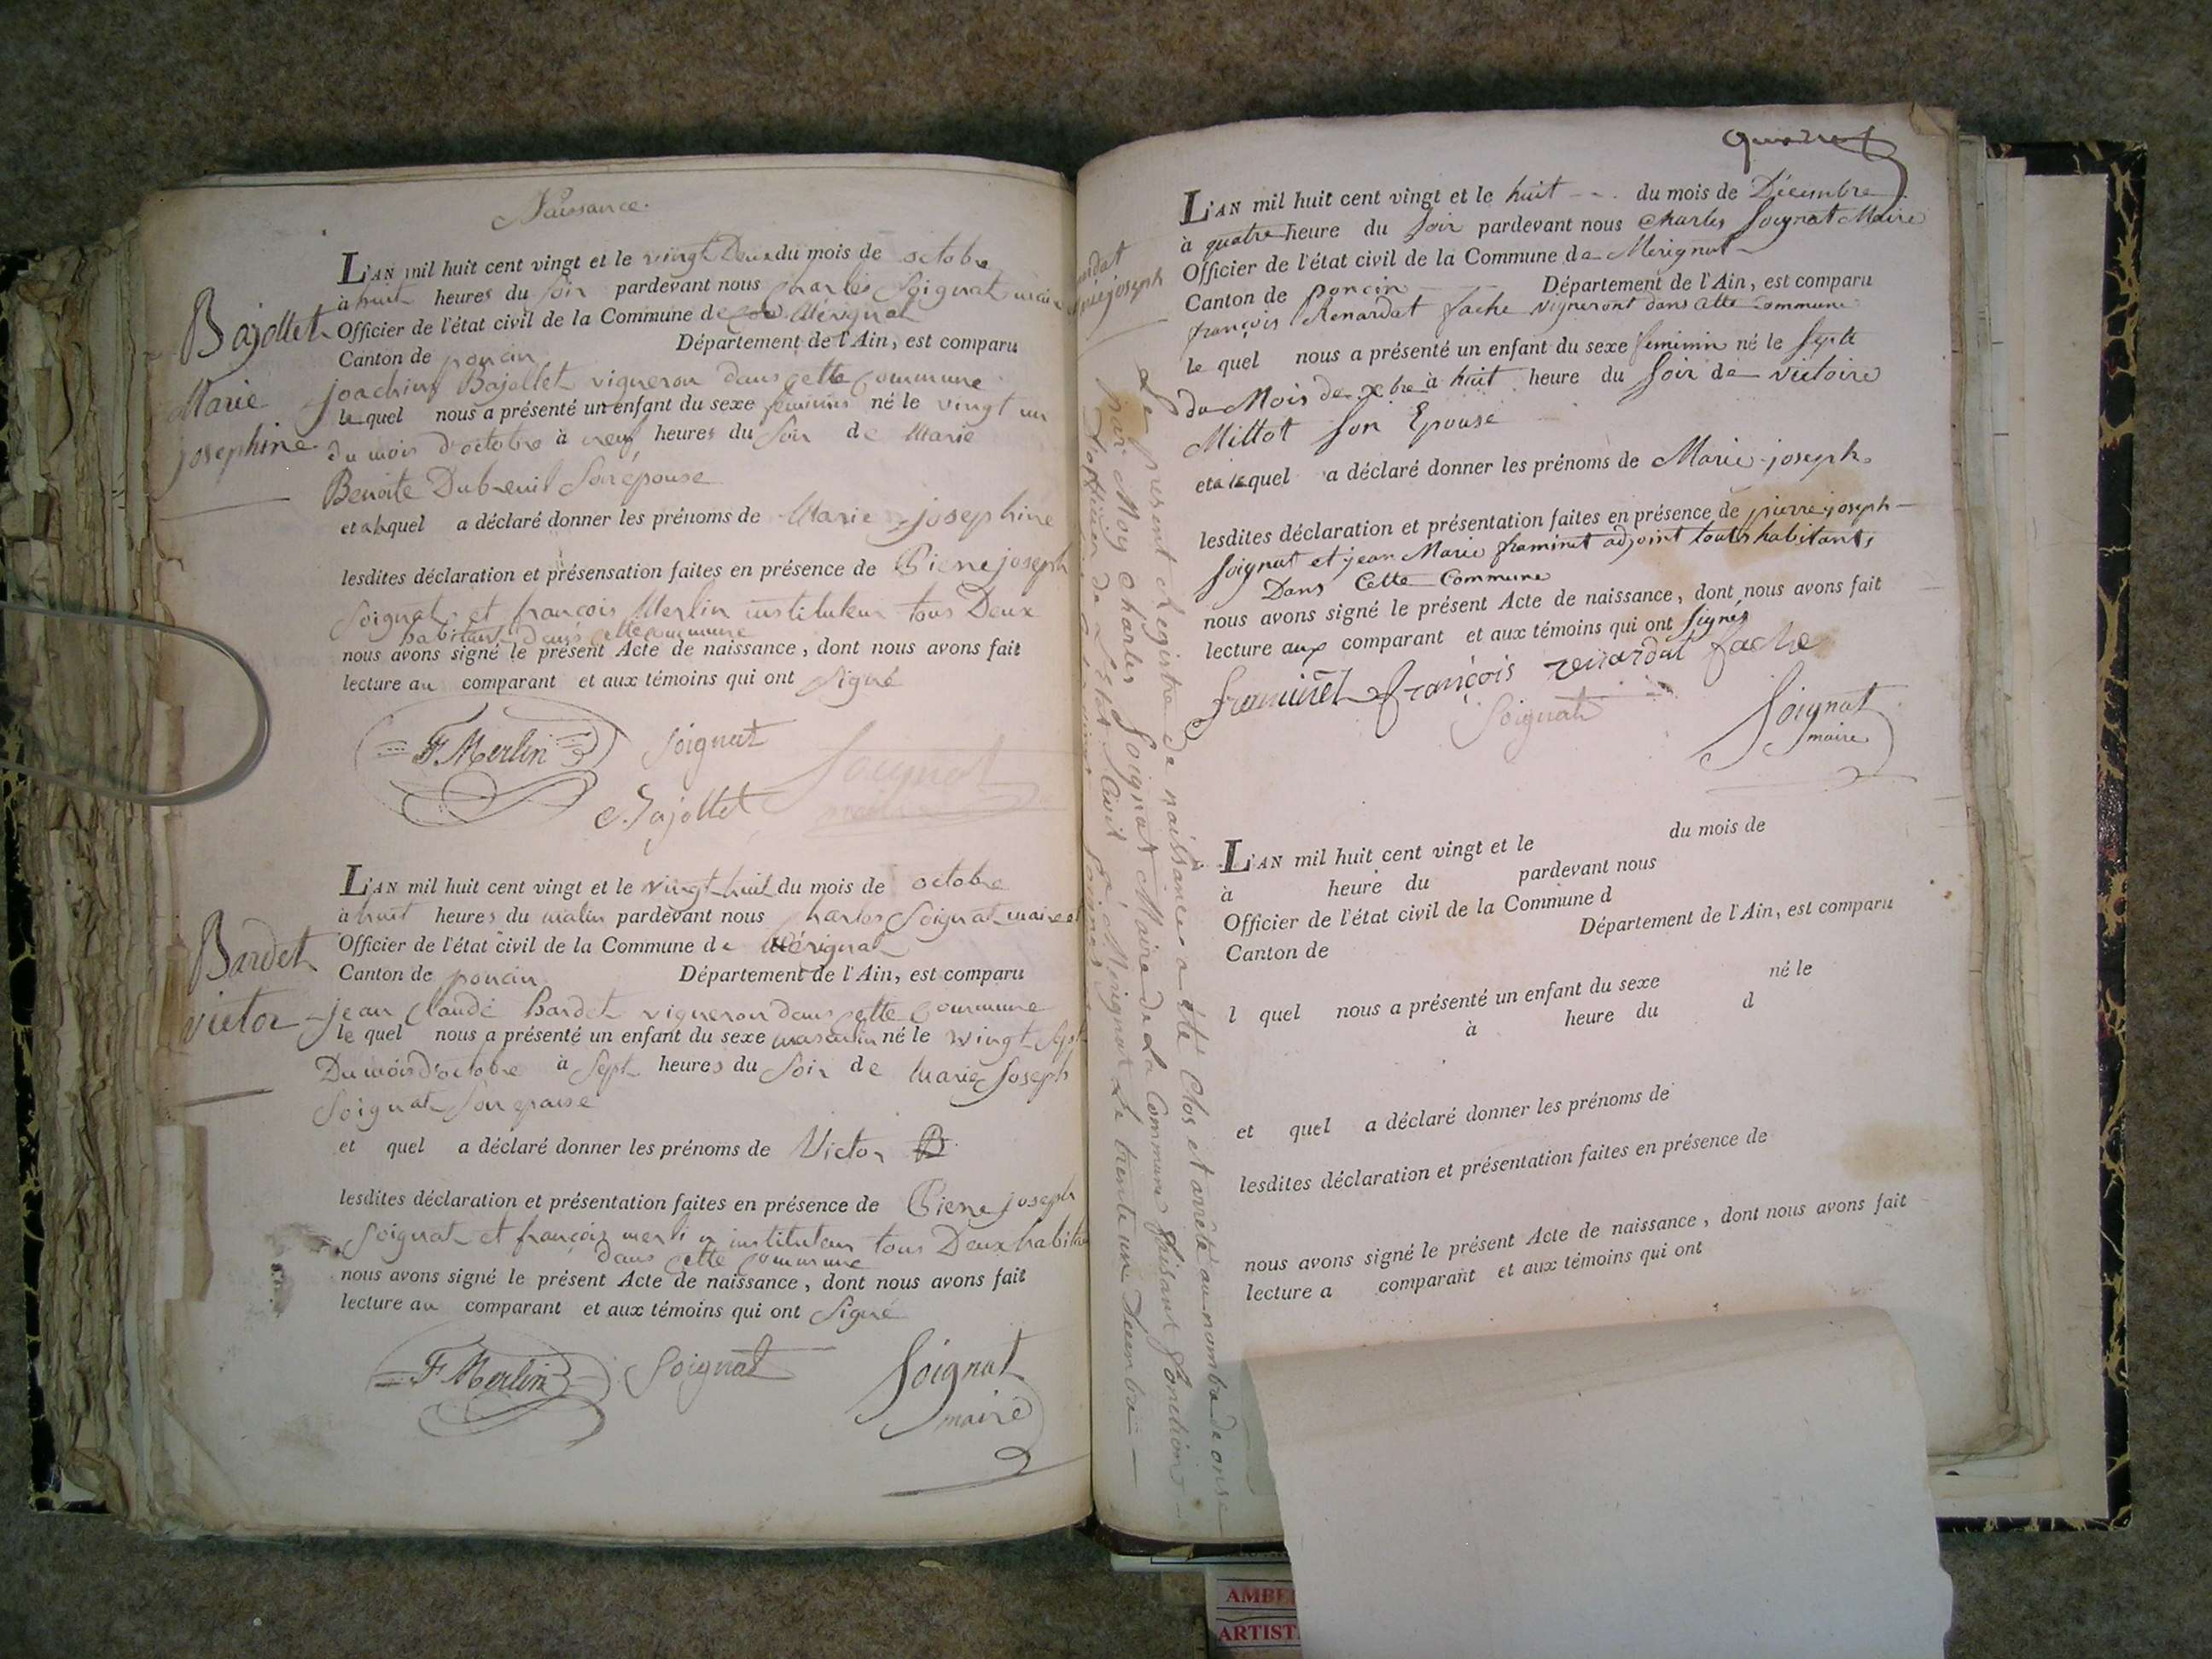 Naissance.
L'AN mil huit cent vingt et le vingt Deux du mois de octobre
à huit heures du soir pardevant nous Charles Soignat maire
Officier de l'état civil de la Commune de Mérignat
Canton de poncin Département de l'Ain, est comparu
joachim Bajollet vigneron dans cette commune
le quel nous a présenté un enfant du sexe feminin né le vingt un
du mois d'octobre à neuf heures du soir de Marie
Benoite Dubreuil Son épouse
et a lequel a déclaré donner les prénoms de Marie josephine
lesdites déclaration et présensation faites en présence de Pierre joseph
Soignat et françois Merlin instituteur tous Deux
habitant dans cette commune
nous avons signé le présent Acte de naissance, dont nous avons fait
lecture au comparant et aux témoins qui ont Signé
Bajollet
Marie
josephine
F. Merlin Soignat
Bajollet Soignat
maire
L'AN mil huit cent vingt et le vingt-huit du mois de octobre
à huit heures du matin pardevant nous Charles Soignat maire et
Officier de l'état civil de la Commune de Mérignat
Canton de poncin Département de l'Ain, est comparu
jean Claude Bardet vigneron dans cette commune
le quel nous a présenté un enfant du sexe masculin né le vingt Sept
Du mois d'octobre à Sept heures du Soir de Marie Joseph
Soignat Son epouse
et quel a déclaré donner les prénoms de Victor B
lesdites déclaration et présentation faites en présence de Pierre joseph
Soignat et françois merlin instituteur tous Deux habitan
dans cette commune
nous avons signé le présent Acte de naissance, dont nous avons fait
lecture au comparant et aux témoins qui ont Signé
Bardet
victor
F Merlin Soignat Soignat
maire
L'AN mil huit cent vingt et le huit du mois de Décembre
à quatre heure du Soir pardevant nous Charles Soignat Maire
Officier de l'état civil de la Commune de Merignat
Canton de poncin Département de l'Ain, est comparu
françois Renardat fache vigneront dans cette commune
le quel nous a présenté un enfant du sexe feminin né le Septe
du Mois de xbre à huit heure du Soir de victoire
Millot Son Epouse
et a lequel a déclaré donner les prénoms de Marie-joseph
lesdites déclaration et présentation faites en présence de pierre-joseph
Soignat et jean Marie framinet adjoint touts habitants
Dans Cette Commune
nous avons signé le présent Acte de naissance, dont nous avons fait
lecture aux comparant et aux témoins qui ont Signés
framinet françois renardat fache
Soignat Soignat
maire
Le present Registre de naissances a été Clos et arrêté au nombre de onse
par Moy Charles Soignat Maire de La Commune faisant fonction
d'officier de L'état Civil à Merignat Le trente un Decembre
L'AN mil huit cent vingt et le du mois de
à heure du pardevant nous
Officier de l'état civil de la Commune d
Canton de Département de l'Ain, est comparu
l quel nous a présenté un enfant du sexe né le
à heure du d
et quel a déclaré donner les prénoms de
lesdites déclaration et présentation faites en présence de
nous avons signé le présent Acte de naissance, dont nous avons fait
lecture a comparant et aux témoins qui ont
AMBE
ARTIST